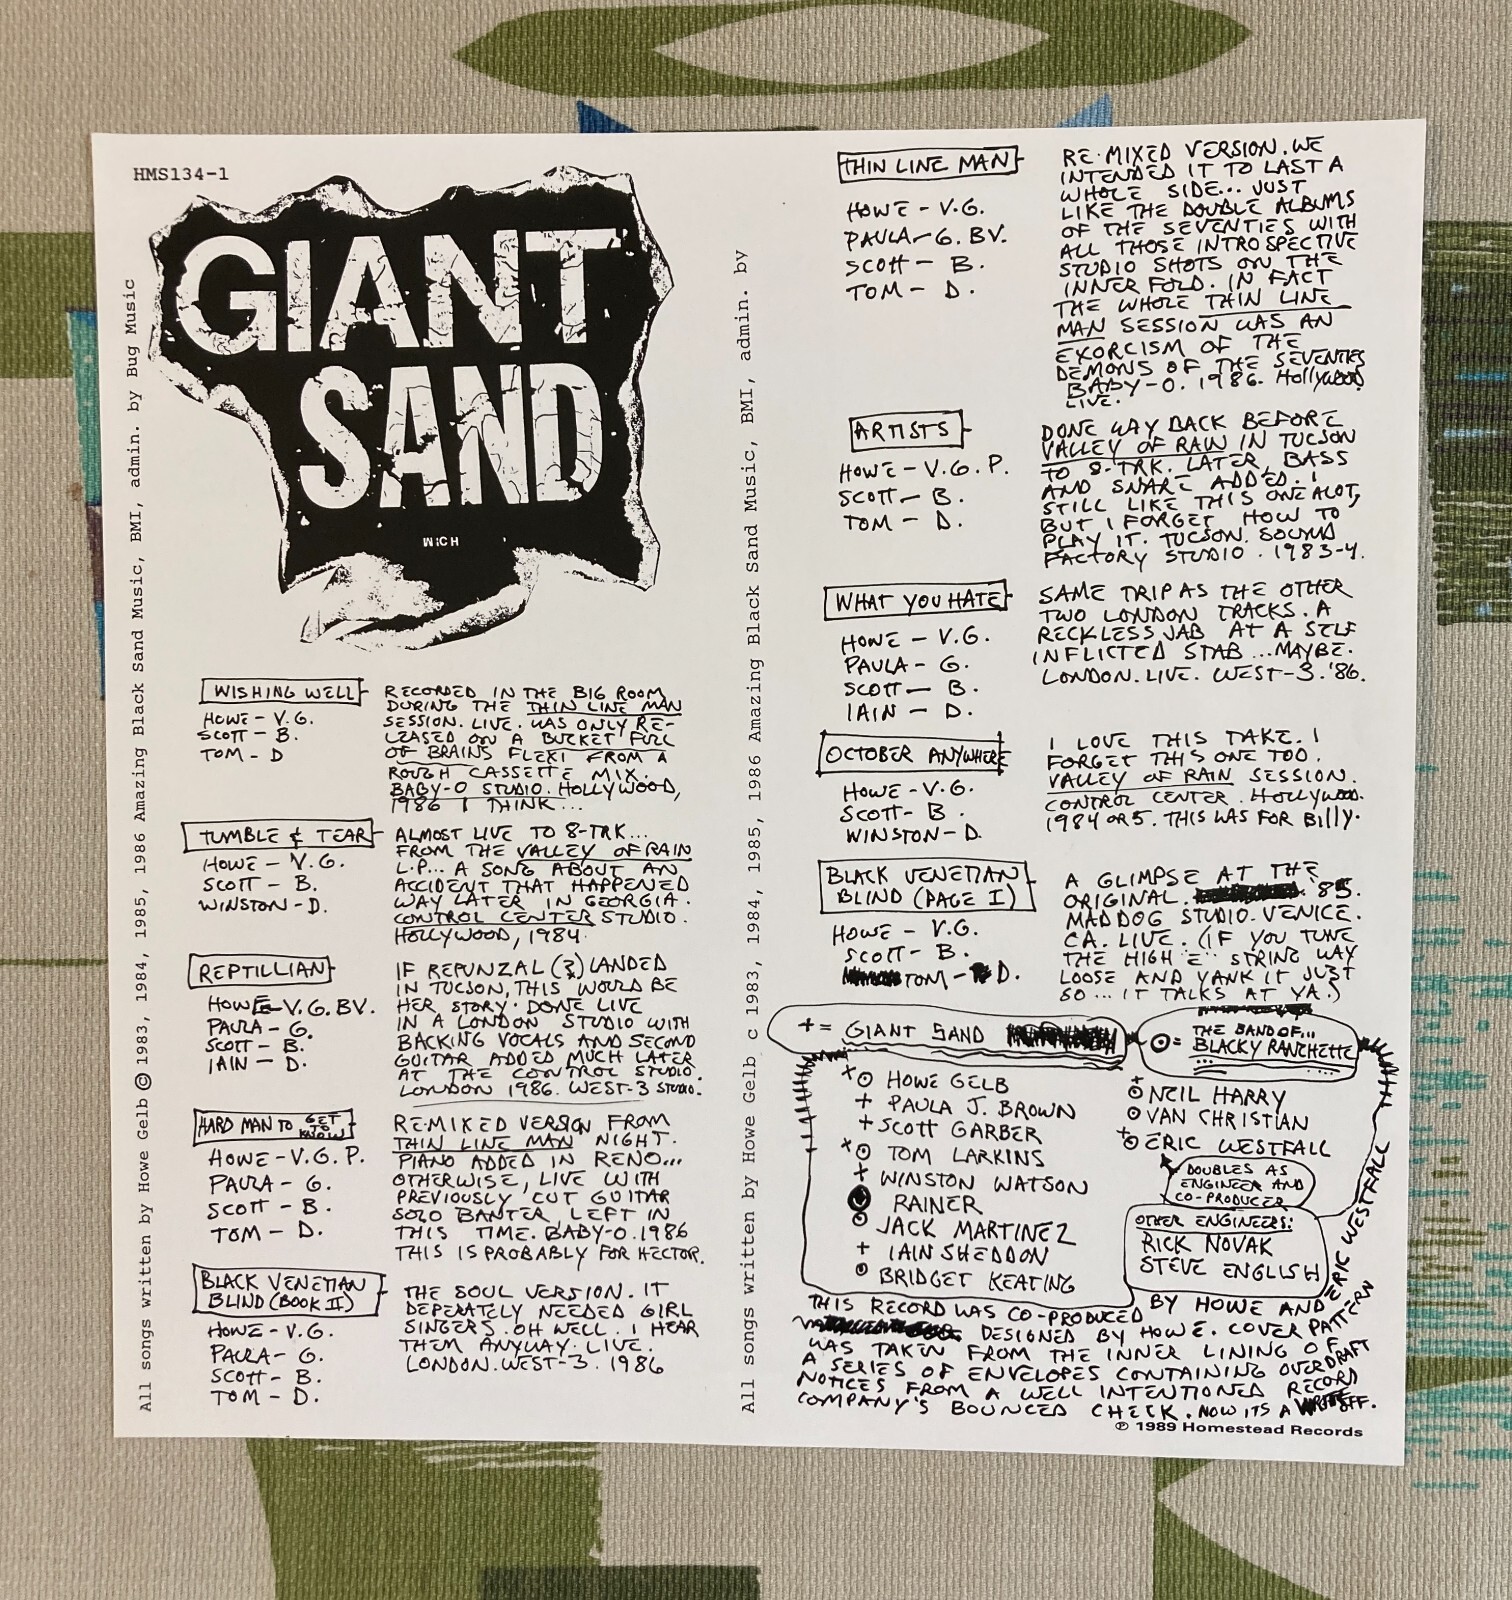 HMS134-1
GIANT
SAND
WICH
All songs written by Howe Gelb © 1983, 1984, 1985, 1986 Amazing Black Sand Music, BMI, admin. by Bug Music
WISHING WELL
HOWE - V.G.
SCOTT - B.
TOM - D
RECORDED IN THE BIG ROOM
DURING THE THIN LINE MAN
SESSION. LIVE. WAS ONLY RE-
LEASED ON A BUCKET FULL
OF BRAINS FLEXI FROM A
ROUGH CASSETTE MIX.
BABY-O STUDIO. HOLLYWOOD,
1986 I THINK...
TUMBLE & TEAR
HOWE - V.G.
SCOTT - B.
WINSTON - D.
ALMOST LIVE TO 8-TRK...
FROM THE VALLEY OF RAIN
L.P... A SONG ABOUT AN
ACCIDENT THAT HAPPENED
WAY LATER IN GEORGIA.
CONTROL CENTER STUDIO.
HOLLYWOOD, 1984.
REPTILLIAN
HOWE - V.G. BV.
PAULA - G.
SCOTT - B.
IAIN - D.
IF REPUNZAL (?) LANDED
IN TUCSON, THIS WOULD BE
HER STORY. DONE LIVE
IN A LONDON STUDIO WITH
BACKING VOCALS AND SECOND
GUITAR ADDED MUCH LATER
AT THE CONTROL STUDIO.
LONDON 1986. WEST-3 STUDIO.
HARD MAN TO GET TO KNOW
HOWE - V.G. P.
PAULA - G.
SCOTT - B.
TOM - D.
RE-MIXED VERSION FROM
THIN LINE MAN NIGHT.
PIANO ADDED IN RENO...
OTHERWISE, LIVE WITH
PREVIOUSLY CUT GUITAR
SOLO BANTER LEFT IN
THIS TIME. BABY-O. 1986
THIS IS PROBABLY FOR HECTOR.
BLACK VENETIAN
BLIND (BOOK II)
HOWE - V.G.
PAULA - G.
SCOTT - B.
TOM - D.
THE SOUL VERSION. IT
DEPERATELY NEEDED GIRL
SINGERS. OH WELL. I HEAR
THEM ANYWAY. LIVE.
LONDON. WEST-3. 1986
All songs written by Howe Gelb c 1983, 1984, 1985, 1986 Amazing Black Sand Music, BMI, admin. by
THIN LINE MAN
HOWE - V.G.
PAULA - G. BV.
SCOTT - B.
TOM - D.
RE-MIXED VERSION. WE
INTENDED IT TO LAST A
WHOLE SIDE... JUST
LIKE THE DOUBLE ALBUMS
OF THE SEVENTIES WITH
ALL THOSE INTROSPECTIVE
STUDIO SHOTS ON THE
INNER FOLD. IN FACT
THE WHOLE THIN LINE
MAN SESSION WAS AN
EXORCISM OF THE
DEMONS OF THE SEVENTIES
BABY-O. 1986. HOLLYWOOD
LIVE.
ARTISTS
HOWE - V.G.P.
SCOTT - B.
TOM - D.
DONE WAY BACK BEFORE
VALLEY OF RAIN IN TUCSON
TO 8-TRK. LATER, BASS
AND SNARE ADDED. I
STILL LIKE THIS ONE ALOT,
BUT I FORGET HOW TO
PLAY IT. TUCSON. SOUND
FACTORY STUDIO. 1983-4.
WHAT YOU HATE
HOWE - V.G.
PAULA - G.
SCOTT - B.
IAIN - D.
SAME TRIP AS THE OTHER
TWO LONDON TRACKS. A
RECKLESS JAB AT A SELF
INFLICTED STAB ... MAYBE.
LONDON. LIVE. WEST-3. '86.
OCTOBER ANYWHERE
HOWE - V.G.
SCOTT - B.
WINSTON - D.
I LOVE THIS TAKE. I
FORGET THIS ONE TOO.
VALLEY OF RAIN SESSION.
CONTROL CENTER. HOLLYWOOD.
1984 OR 5. THIS WAS FOR BILLY.
BLACK VENETIAN
BLIND (PAGE I)
HOWE - V.G.
SCOTT - B.
TOM - D.
A GLIMPSE AT THE
ORIGINAL. 85.
MADDOG STUDIO. VENICE.
CA. LIVE. (IF YOU TUNE
THE HIGH "E" STRING WAY
LOOSE AND YANK IT JUST
SO... IT TALKS AT YA.)
+ = GIANT SAND
⊙ = THE BAND OF...
BLACKY RANCHETTE
+ ⊙ HOWE GELB
+ PAULA J. BROWN
+ SCOTT GARBER
+ ⊙ TOM LARKINS
+ WINSTON WATSON
⊙ RAINER
⊙ JACK MARTINEZ
+ IAIN SHEDDON
⊙ BRIDGET KEATING
+ ⊙ NEIL HARRY
⊙ VAN CHRISTIAN
+ ⊙ ERIC WESTFALL
DOUBLES AS
ENGINEER AND
CO-PRODUCER
OTHER ENGINEERS:
RICK NOVAK
STEVE ENGLISH
THIS RECORD WAS CO-PRODUCED BY HOWE AND ERIC WESTFALL
DESIGNED BY HOWE. COVER PATTERN
WAS TAKEN FROM THE INNER LINING OF
A SERIES OF ENVELOPES CONTAINING OVERDRAFT
NOTICES FROM A WELL INTENTIONED RECORD
COMPANY'S BOUNCED CHECK. NOW ITS A WRITE OFF.
℗ 1989 Homestead Records